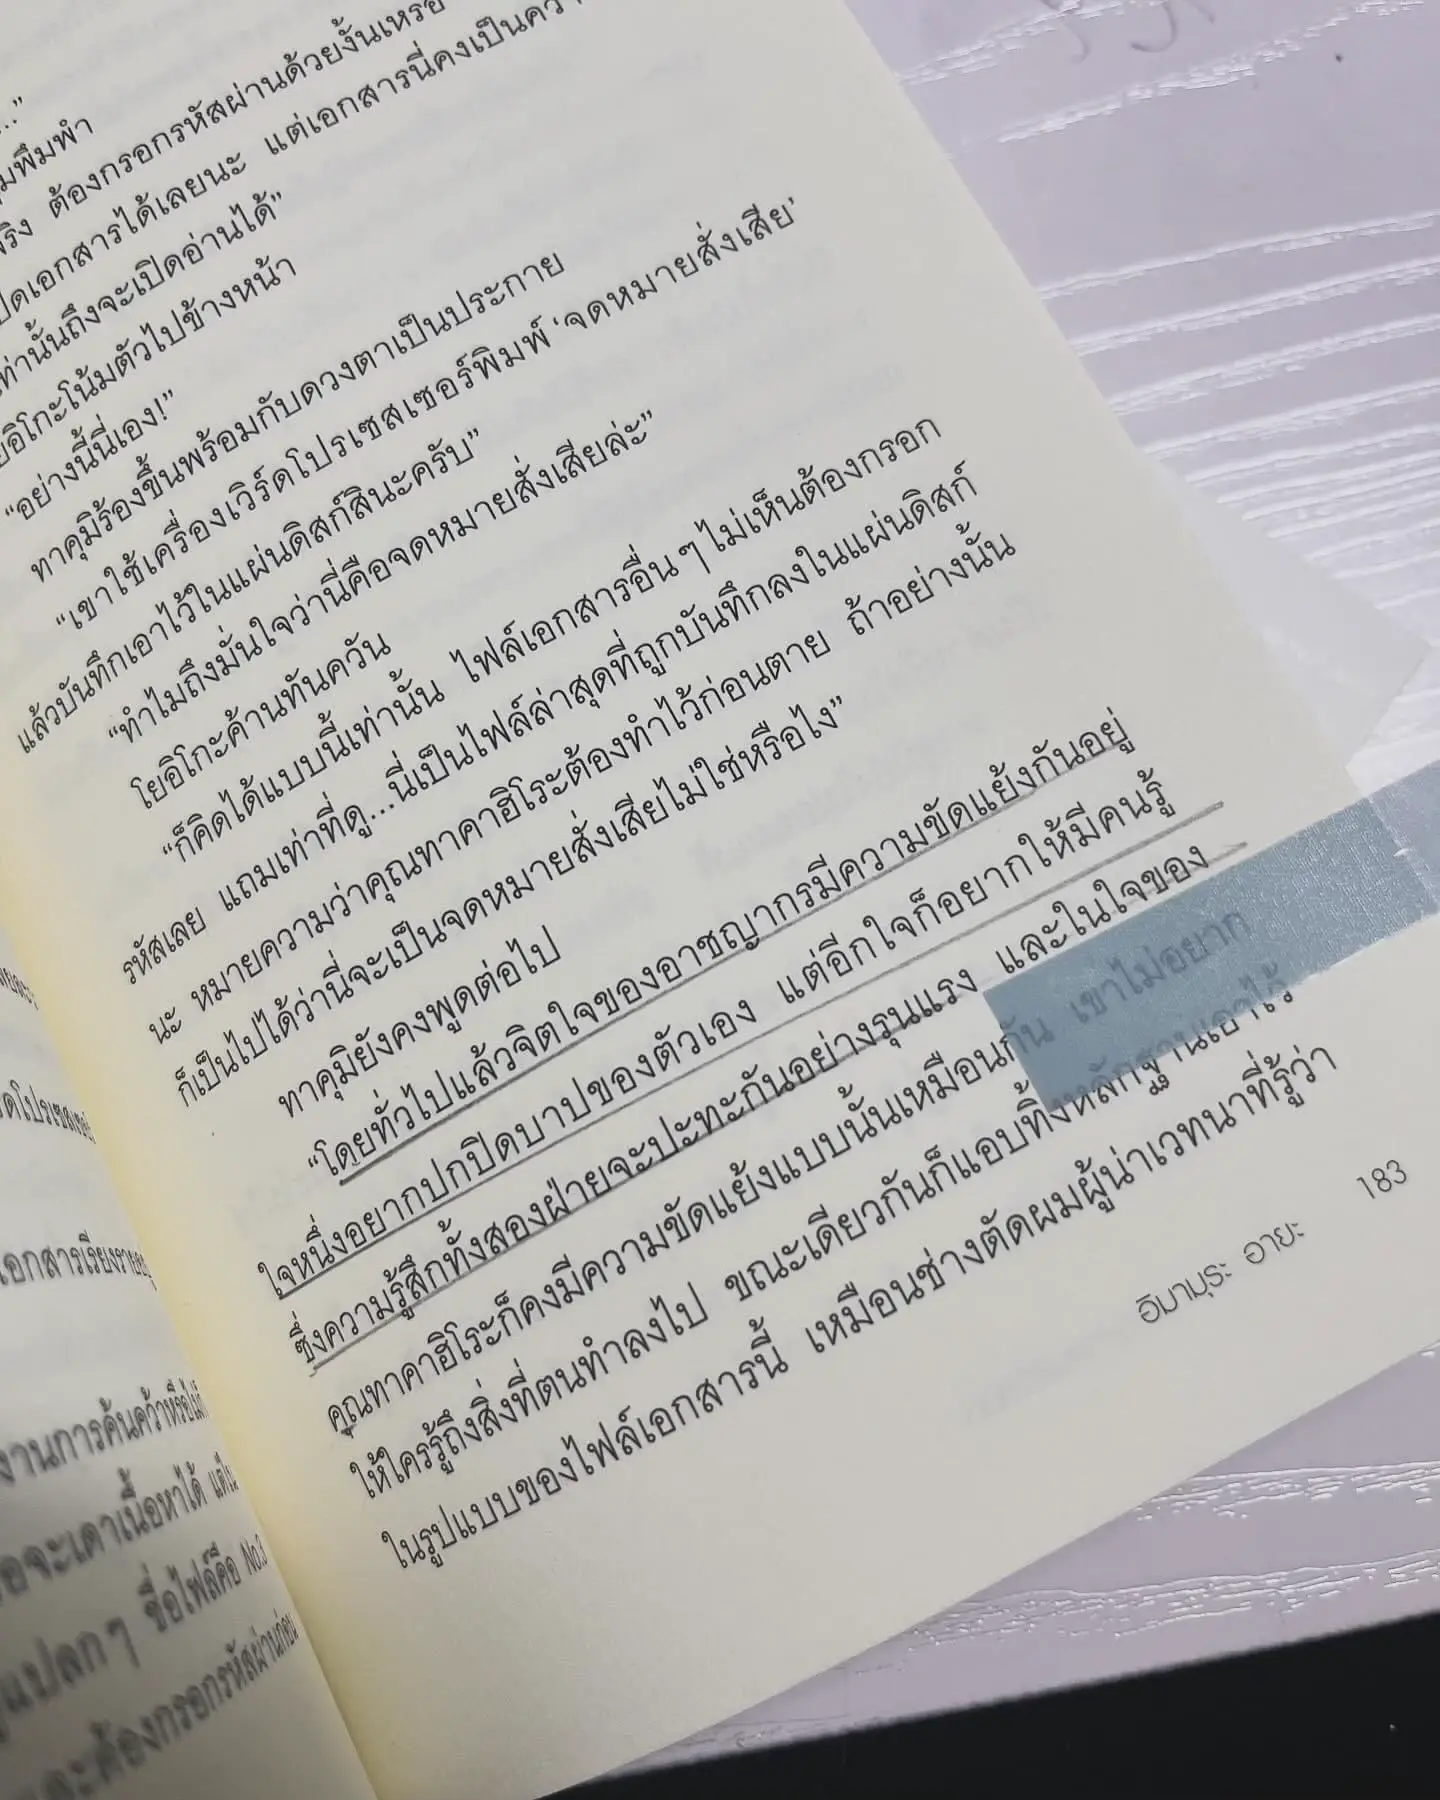 ...”
พึมพำ
ต้องกรอกรหัสผ่านด้วยงั้นเหรอ
เอกสารได้เลยนะ แต่เอกสารนี่คงเป็น
เท่านั้นถึงจะเปิดอ่านได้”
โยอิโกะโน้มตัวไปข้างหน้า
“อย่างนี้นี่เอง!”
ทาคุมิร้องขึ้นพร้อมกับดวงตาเป็นประกาย
“เขาใช้เครื่องเวิร์ดโปรเซสเซอร์พิมพ์ ‘จดหมายสั่งเสีย’
แล้วบันทึกเอาไว้ในแผ่นดิสก์สินะครับ”
“ทำไมถึงมั่นใจว่านี่คือจดหมายสั่งเสียล่ะ”
โยอิโกะค้านทันควัน
“ก็คิดได้แบบนี้เท่านั้น ไฟล์เอกสารอื่นๆ ไม่เห็นต้องกรอก
รหัสเลย แถมเท่าที่ดู...นี่เป็นไฟล์ล่าสุดที่ถูกบันทึกลงในแผ่นดิสก์
นะ หมายความว่าคุณทาคาฮิโระต้องทำไว้ก่อนตาย ถ้าอย่างนั้น
ก็เป็นไปได้ว่านี่จะเป็นจดหมายสั่งเสียไม่ใช่หรือไง”
ทาคุมิยังคงพูดต่อไป
“โดยทั่วไปแล้วจิตใจของอาชญากรมีความขัดแย้งกันอยู่
ใจหนึ่งอยากปกปิดบาปของตัวเอง แต่อีกใจก็อยากให้มีคนรู้
ซึ่งความรู้สึกทั้งสองฝ่ายจะปะทะกันอย่างรุนแรง และในใจของ
คุณทาคาฮิโระก็คงมีความขัดแย้งแบบนั้นเหมือนกัน เขาไม่อยาก
ให้ใครรู้ถึงสิ่งที่ตนทำลงไป ขณะเดียวกันก็แอบทิ้งหลักฐานเอาไว้
ในรูปแบบของไฟล์เอกสารนี้ เหมือนช่างตัดผมผู้น่าเวทนาที่รู้ว่า
อิมามุระ อายะ 183
เอกสารเรียงราย
งานการค้นคว้าหรือ
จะเดาเนื้อหาได้ แต่
แปลกๆ ชื่อไฟล์คือ No.3
และต้องกรอกรหัสผ่านก่อน